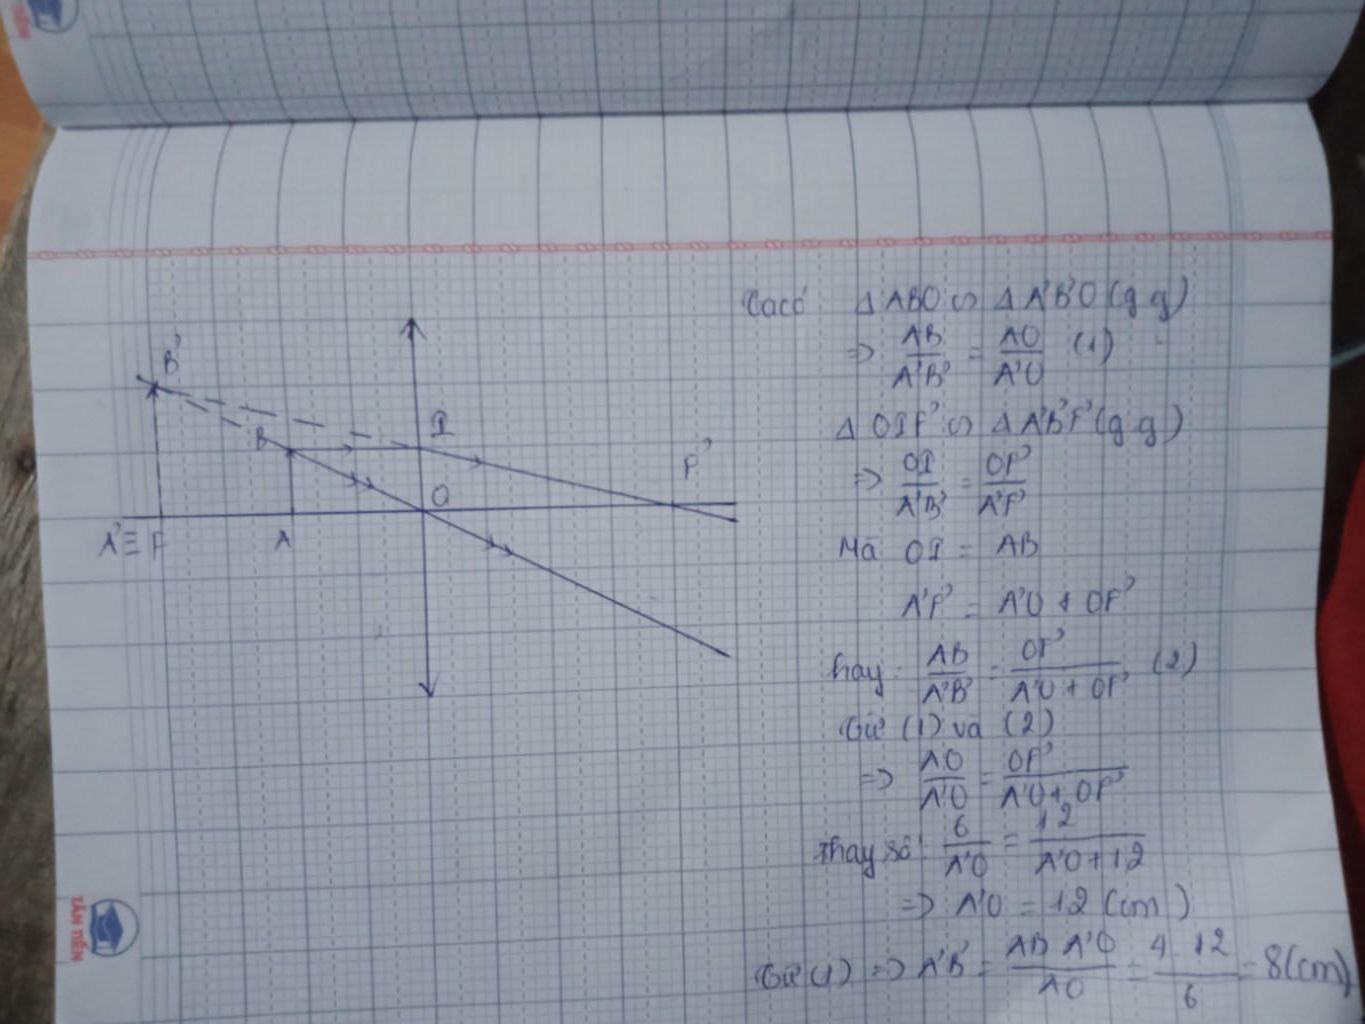 B'
I
B
F'
O
A' ≡ F
A
Ta có ΔABO ∽ ΔA'B'O (g.g)
=> AB/A'B' = AO/A'O (1)
ΔOIF' ∽ ΔA'B'F' (g.g)
=> OI/A'B' = OF'/A'F'
Mà OI = AB
A'F' = A'O + OF'
hay AB/A'B' = OF'/A'O + OF' (2)
Từ (1) và (2)
=> AO/A'O = OF'/A'O + OF'
Thay số: 6/A'O = 12/A'O + 12
=> A'O = 12 (cm)
Từ (1) => A'B' = AB.A'O/AO = 4.12/6 = 8 (cm)
TÂN TIẾN